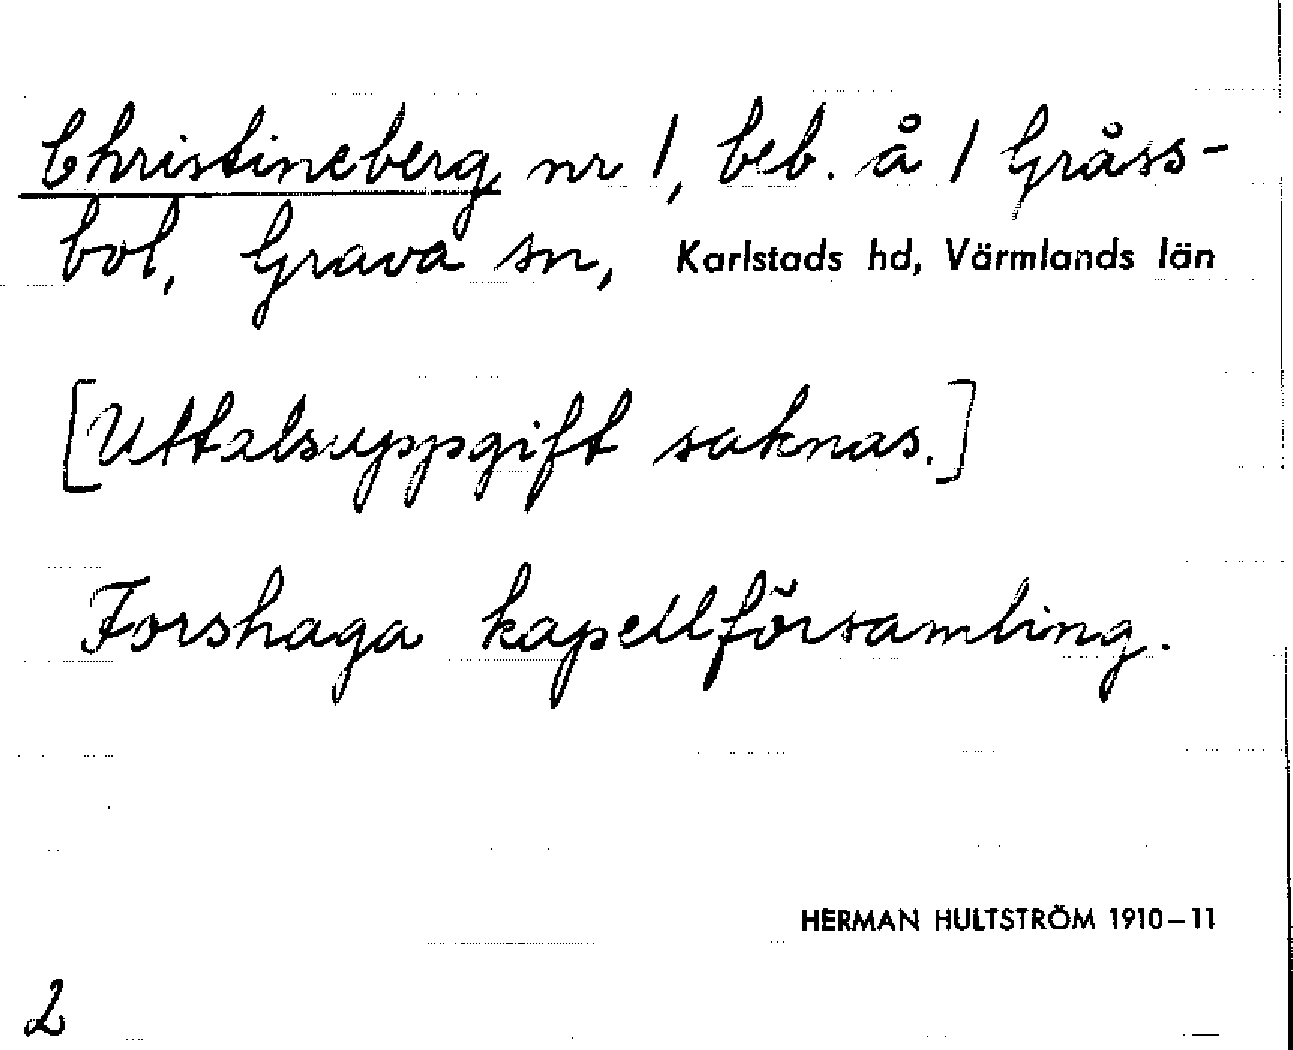 Christineberg nr 1, beb. å 1 Gråss-
bol, Grava sn, Karlstads hd, Värmlands län
[Uttalsuppgift saknas.]
Forshaga kapellförsamling.
HERMAN HULTSTRÖM 1910–11
2